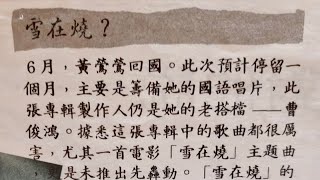 雪在燒？
6月，黃鶯鶯回國。此次預計停留一
個月，主要是籌備她的國語唱片，此
張專輯製作人仍是她的老搭檔——曹
俊鴻。據悉這張專輯中的歌曲都很厲
害，尤其一首電影「雪在燒」主題曲
是未推出先轟動。「雪在燒」的